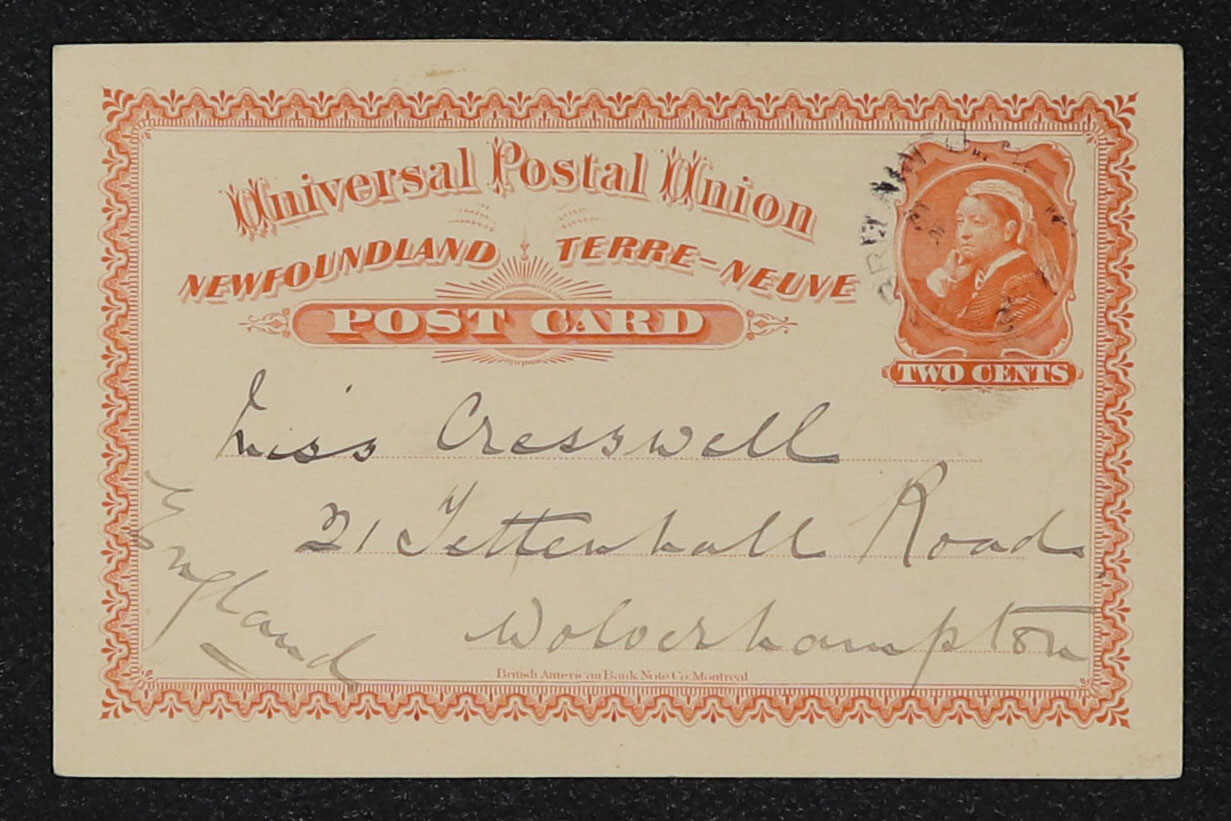 Universal Postal Union
NEWFOUNDLAND TERRE-NEUVE
POST CARD
TWO CENTS
Miss Cresswell
21 Tettenhall Road
Wolverhampton
England
British American Bank Note Co. Montreal